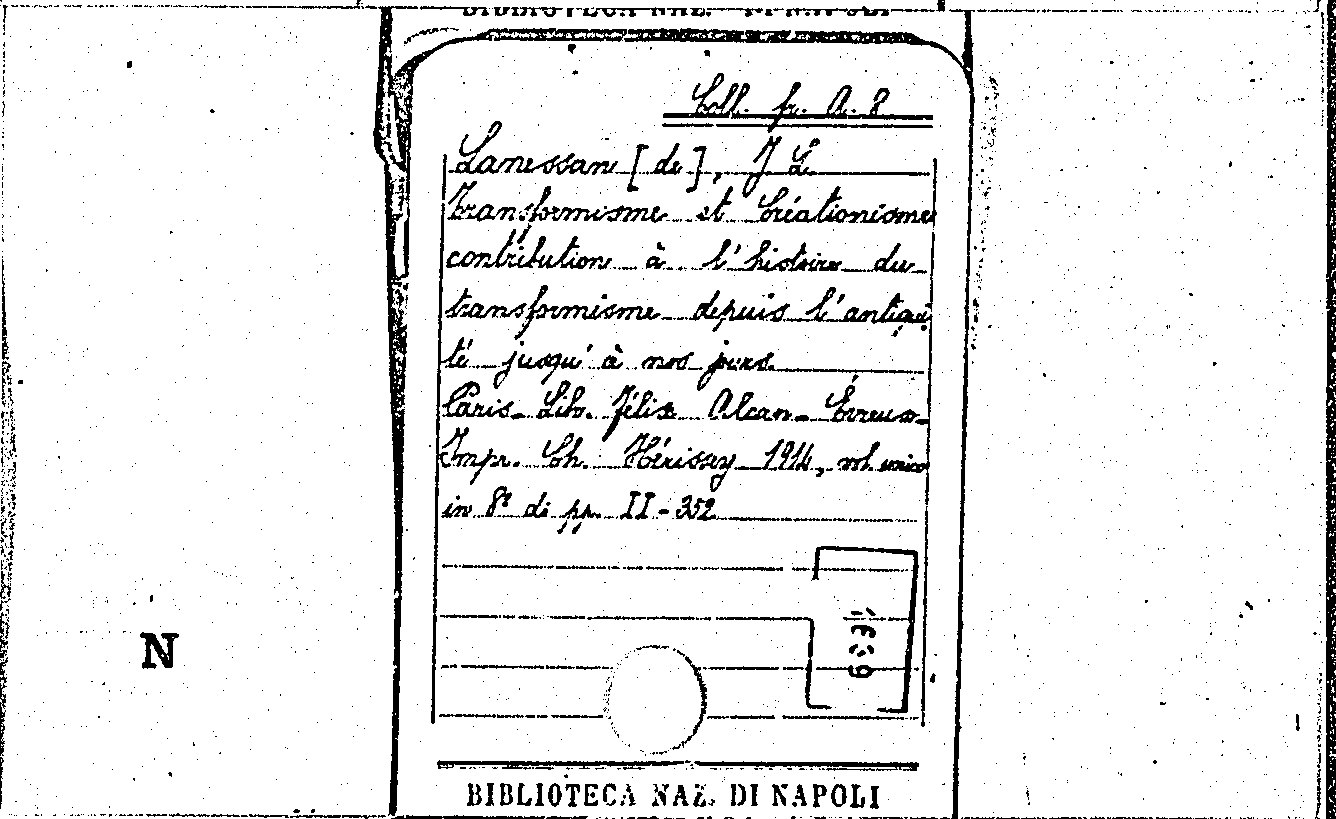 BIBLIOTECA NAZ. DI NAPOLI
Coll. fr. A. 8
Lanessan [de], J L
Transformisme et Créationisme
contribution à l'histoire du
transformisme depuis l'antiqui
té jusqu'à nos jours.
Paris - Lib. Félix Alcan - Évreux -
Impr. Ch. Hérissey 1914, vol. unico
in 8º di pp. II - 352
N
BIBLIOTECA NAZ. DI NAPOLI